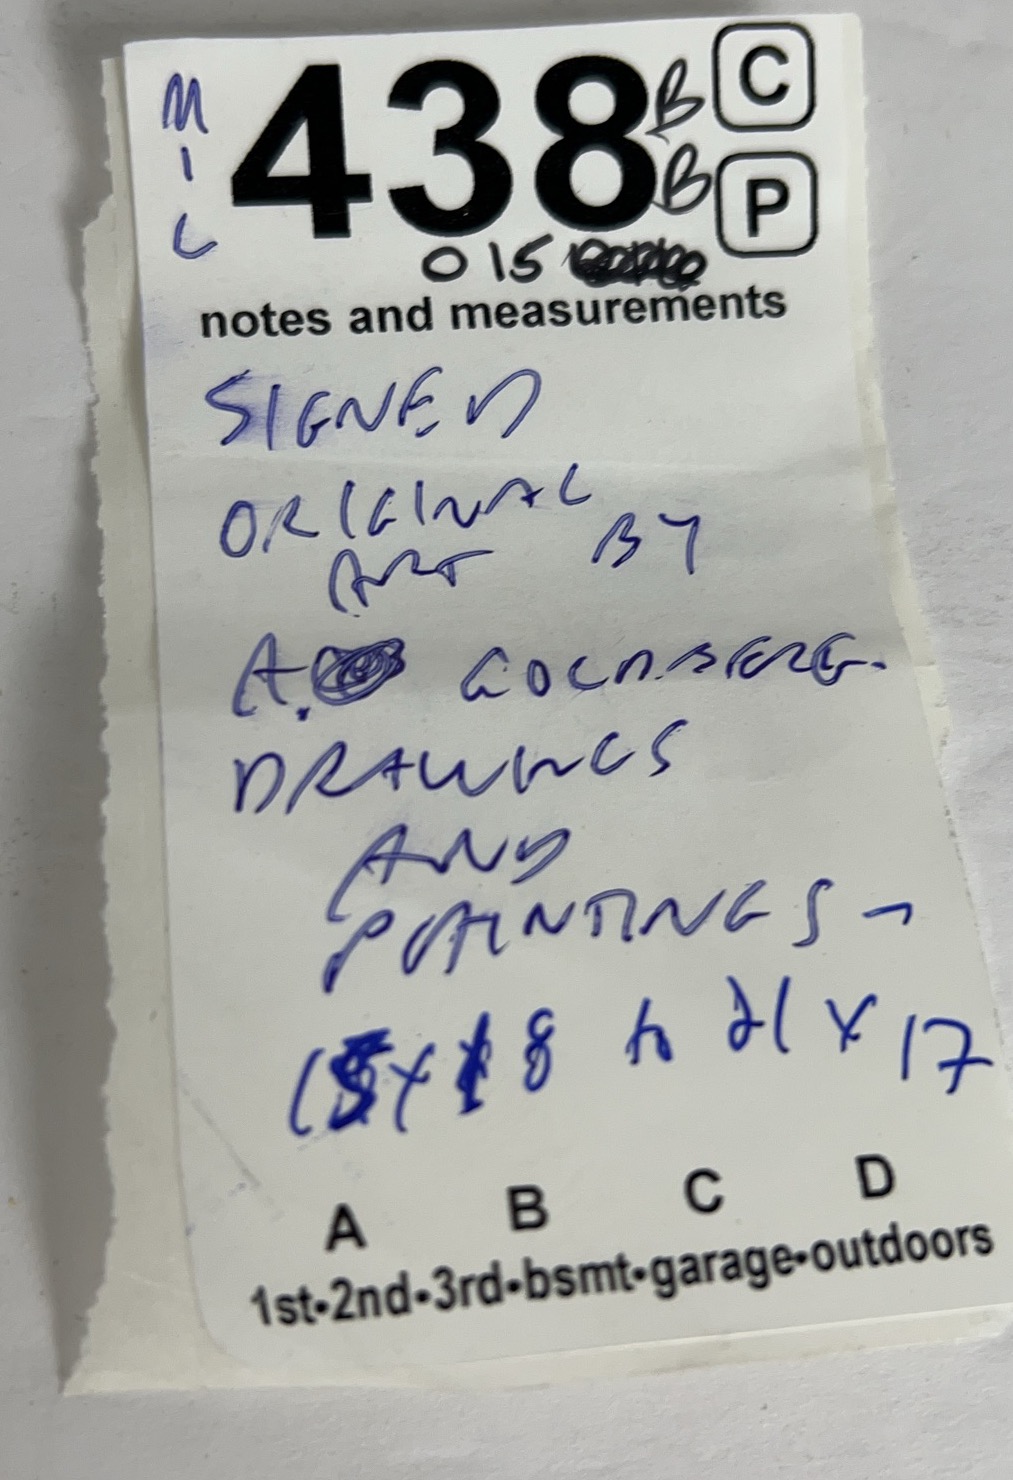 MIL 438 BB C
P
015
notes and measurements
SIGNED
ORIGINAL
ART BY
A. GOLDBERG.
DRAWINGS
AND
PAINTINGS -
15 x 8 to 21 x 17
A B C D
1st•2nd•3rd•bsmt•garage•outdoors